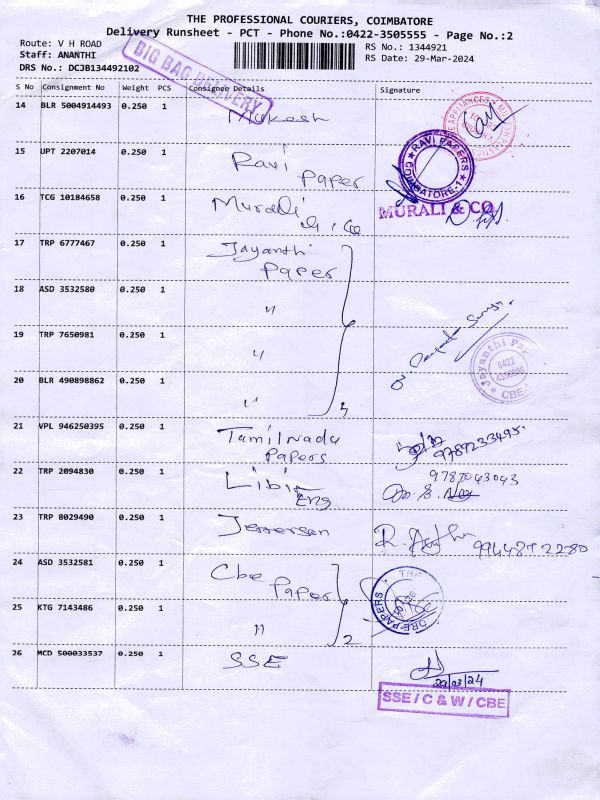 THE PROFESSIONAL COURIERS, COIMBATORE
Delivery Runsheet - PCT - Phone No.:0422-3505555 - Page No.:2
Route: V H ROAD
Staff: ANANTHI
DRS No.: DCJB134492102
RS No.: 1344921
RS Date: 29-Mar-2024
BIG BAG DELIVERY
S No Consignment No Weight PCS Consignee Details Signature
14 BLR 5004914493 0.250 1 Mukesh
15 UPT 2207014 0.250 1 Ravi Paper
RAVI PAPERS COIMBATORE-1
16 TCG 10184658 0.250 1 Murali & Co
MURALI & CO
17 TRP 6777467 0.250 1 Jayanthi Paper
18 ASD 3532580 0.250 1 "
19 TRP 7650981 0.250 1 "
Jayanthi Par
0422
CBE
20 BLR 490898862 0.250 1 "
4
21 VPL 946250395 0.250 1 Tamilnadu Papers
9789233495
22 TRP 2094830 0.250 1 Libi Eng
9787043043
23 TRP 8029490 0.250 1 Jefferson
R.
9944872280
24 ASD 3532581 0.250 1 Cbe Paper
THE
ORE PAPERS
25 KTG 7143486 0.250 1 "
2
26 MCD 500033537 0.250 1 SSE
29/03/24
SSE / C & W / CBE